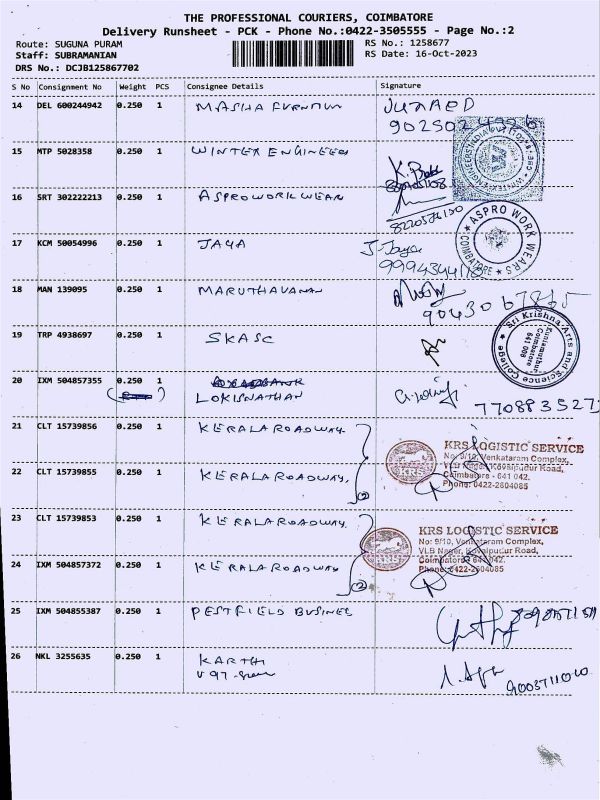 THE PROFESSIONAL COURIERS, COIMBATORE
Delivery Runsheet - PCK - Phone No.:0422-3505555 - Page No.:2
Route: SUGUNA PURAM
Staff: SUBRAMANIAN
DRS No.: DCJB125867702
RS No.: 1258677
RS Date: 16-Oct-2023
S No Consignment No Weight PCS Consignee Details Signature
14 DEL 600244942 0.250 1 MASHA FURNITUR JUNAED
15 MTP 5028358 0.250 1 WINTEX ENGINEER
16 SRT 302222213 0.250 1 ASPROWORKWEAR
8220576150
ASPRO WORK WEARS
COIMBATORE
17 KCM 50054996 0.250 1 JAYA J. Jaya
18 MAN 139095 0.250 1 MARUTHAVANAN
9043067865
19 TRP 4938697 0.250 1 SKASC
Sri Krishna Arts and Science College
Kuniamuthur
Coimbatore
641 008
20 IXM 504857355 0.250 1
LOKISNATHAN
770883527
21 CLT 15739856 0.250 1 KERALAROADWAY.
22 CLT 15739855 0.250 1 KERALAROADWAY.
KRS
KRS LOGISTIC SERVICE
No: 9/10, Venkataram Complex,
VLB Nagar, Kovaipudur Road,
Coimbatore - 641 042.
Phone: 0422-2604085
23 CLT 15739853 0.250 1 KERALAROADWAY.
24 IXM 504857372 0.250 1 KERALAROADWAY
KRS
KRS LOGISTIC SERVICE
No: 9/10, Venkataram Complex,
VLB Nagar, Kovaipudur Road,
Coimbatore - 641 042.
Phone: 0422-2604085
25 IXM 504855387 0.250 1 PESTFIELD BUSINES
26 NKL 3255635 0.250 1 KARTHI
9003711010